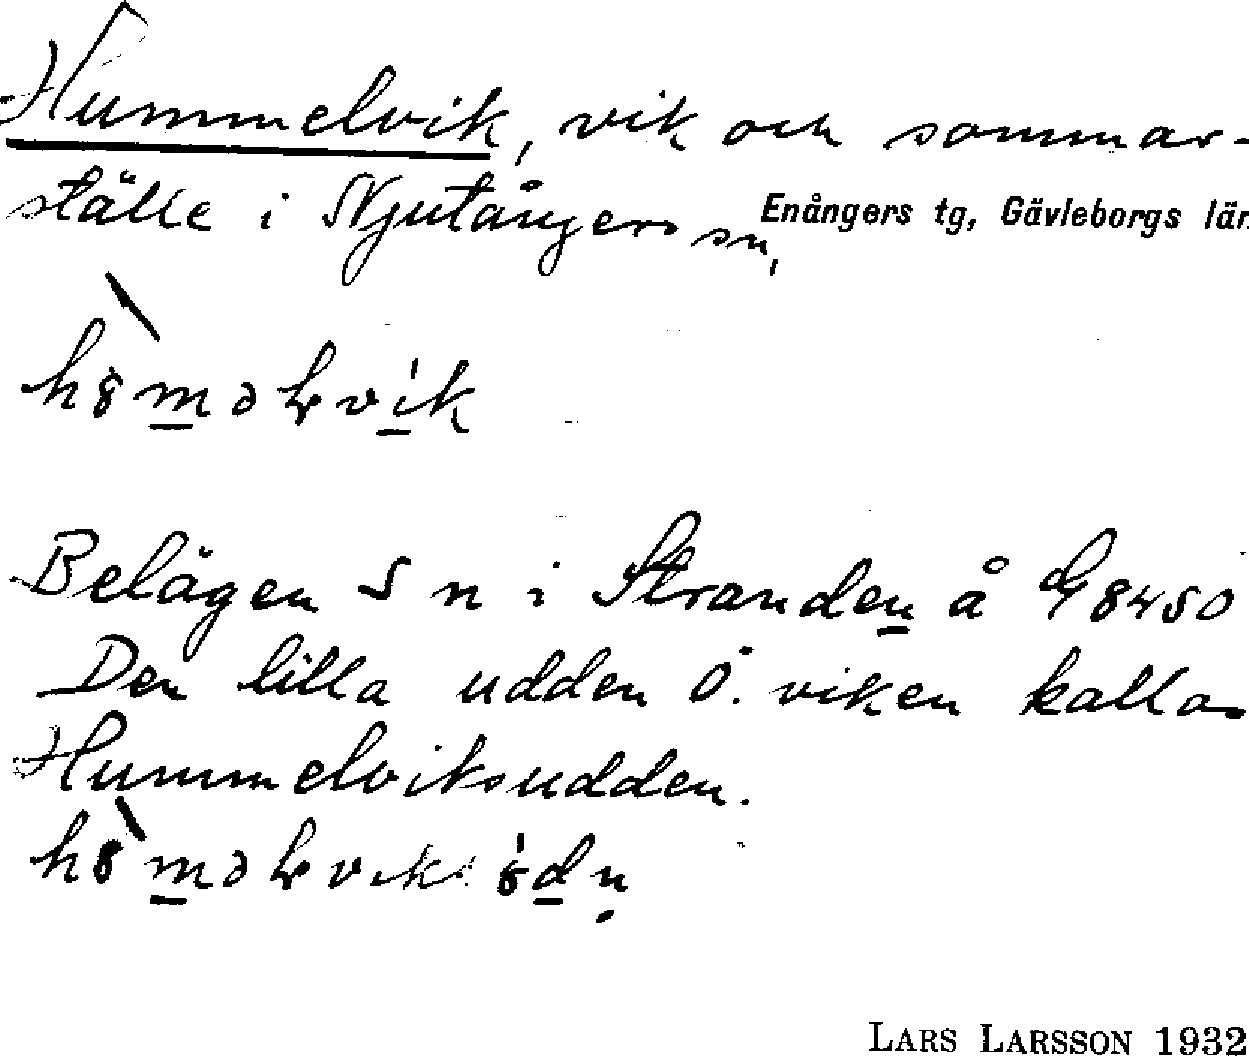 Hummelvik, vik och sommar-
ställe i Njutångers sn, Enångers tg, Gävleborgs län
Belägen S n i Stranden å
Den lilla udden Ö. viken kallas
Hummelviksudden.
LARS LARSSON 1932